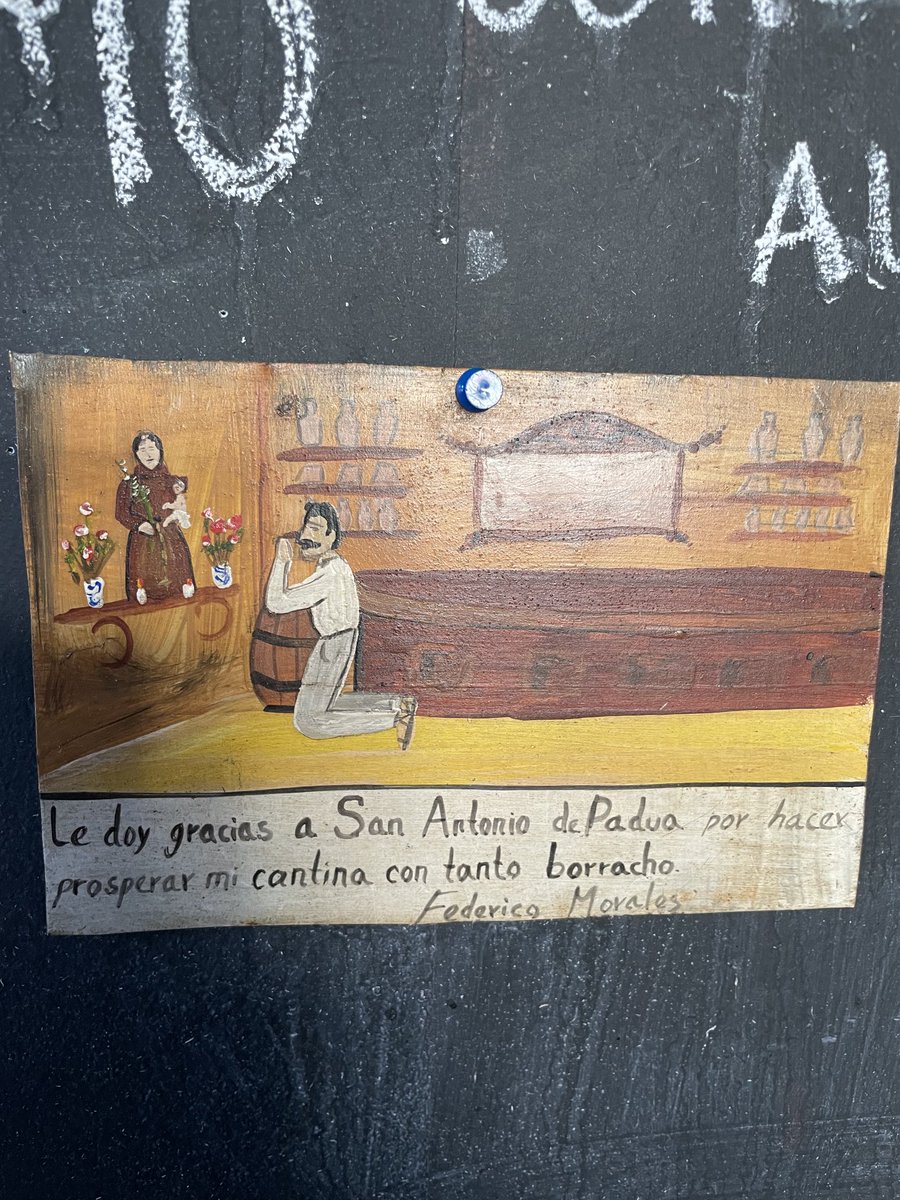 10
AU
Le doy gracias a San Antonio de Padua por hacer
prosperar mi cantina con tanto borracho.
Federico Morales